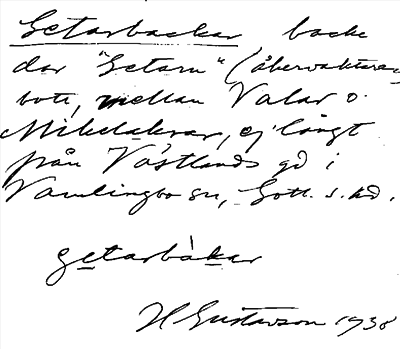 Getarbackar backe
där "Getarn" (åbervaktaren)
bott, mellan Valar o.
Mikelakrar, ej långt
från Västlands gd i
Vamlingbo sn, Gotl. s. hd.
getarbàkar
H Gustavson 1938